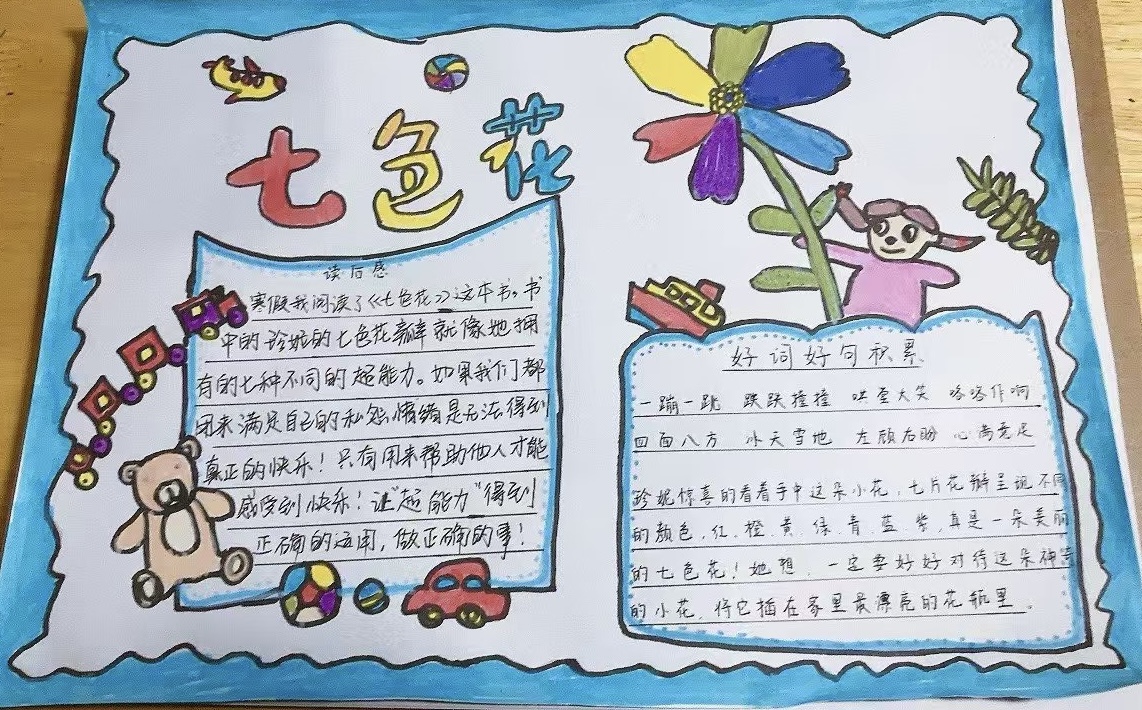 七色花
读后感
寒假我阅读了《七色花》这本书。书
中的珍妮的七色花瓣就像她拥
有的七种不同的超能力。如果我们都
用来满足自己的私怨,情绪是无法得到
真正的快乐!只有用来帮助他人才能
感受到快乐!让"超能力"得到
正确的运用,做正确的事!
好词好句积累
一蹦一跳 跌跌撞撞 哄堂大笑 咯咯作响
四面八方 冰天雪地 左顾右盼 心满意足
珍妮惊喜的看着手中这朵小花,七片花瓣呈现不同
的颜色,红、橙、黄、绿、青、蓝、紫,真是一朵美丽
的七色花!她想,一定要好好对待这朵神奇
的小花,将它插在家里最漂亮的花瓶里。